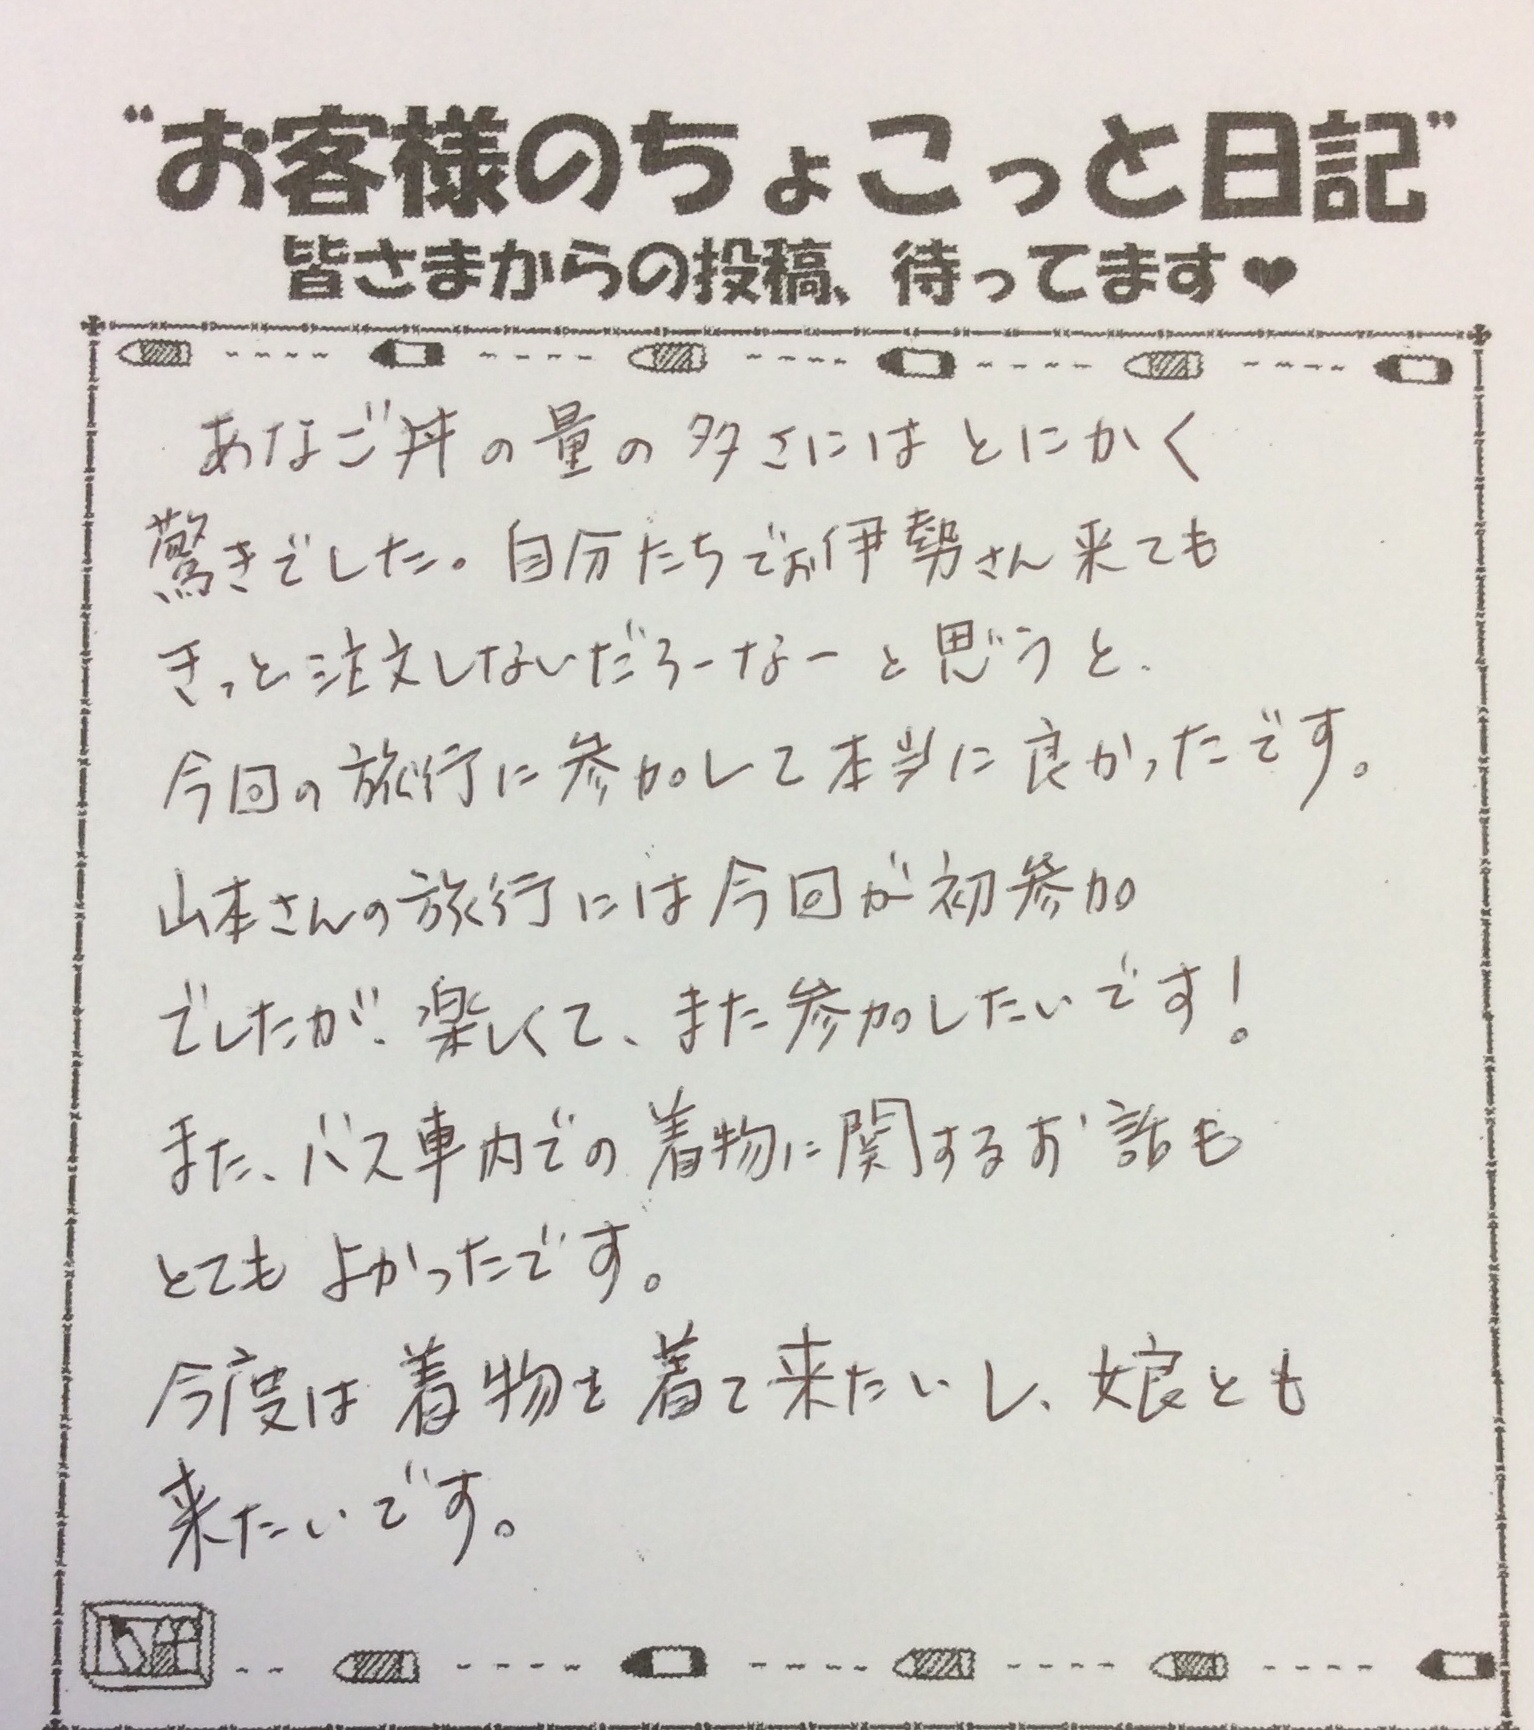 “お客様のちょこっと日記”
皆さまからの投稿、待ってます♥
あなご丼の量の多さにはとにかく
驚きでした。自分たちでお伊勢さん来ても
きっと注文しないだろーなーと思うと、
今回の旅行に参加して本当に良かったです。
山本さんの旅行には今回が初参加
でしたが、楽しくて、また参加したいです!
また、バス車内での着物に関するお話も
とてもよかったです。
今度は着物を着て来たいし、娘とも
来たいです。